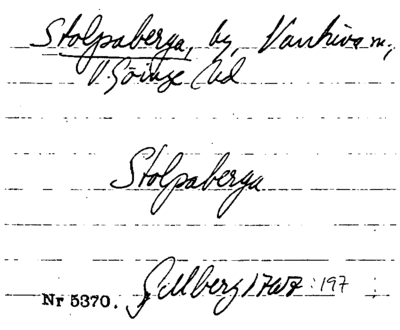 Stolpaberga, by, Vankiva sn,
V. Göinge hd
Stolpaberga
Nr 5370. Gillberg 1767 : 197